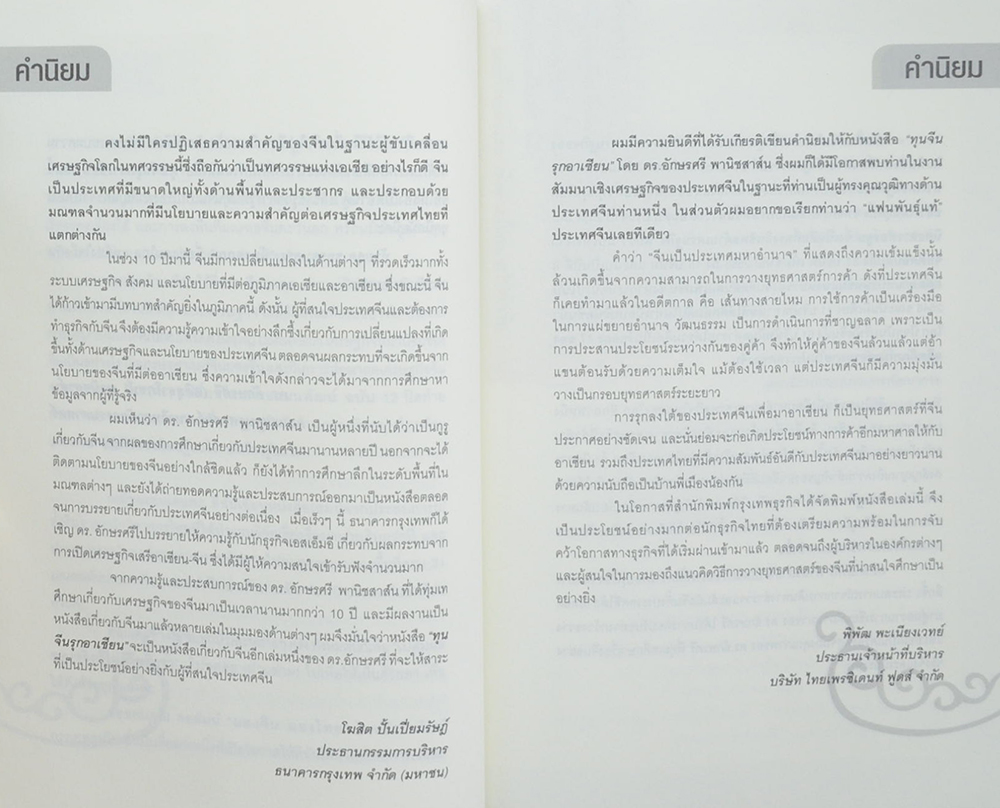 คำนิยม
คงไม่มีใครปฏิเสธความสำคัญของจีนในฐานะผู้ขับเคลื่อน
เศรษฐกิจโลกในทศวรรษนี้ซึ่งถือกันว่าเป็นทศวรรษแห่งเอเชีย อย่างไรก็ดี จีน
เป็นประเทศที่มีขนาดใหญ่ทั้งด้านพื้นที่และประชากร และประกอบด้วย
มณฑลจำนวนมากที่มีนโยบายและความสำคัญต่อเศรษฐกิจประเทศไทยที่
แตกต่างกัน
ในช่วง 10 ปีมานี้ จีนมีการเปลี่ยนแปลงในด้านต่างๆ ที่รวดเร็วมากทั้ง
ระบบเศรษฐกิจ สังคม และนโยบายที่มีต่อภูมิภาคเอเชียและอาเซียน ซึ่งขณะนี้ จีน
ได้ก้าวเข้ามามีบทบาทสำคัญยิ่งในภูมิภาคนี้ ดังนั้น ผู้ที่สนใจประเทศจีนและต้องการ
ทำธุรกิจกับจีน จึงต้องมีความรู้ความเข้าใจอย่างลึกซึ้งเกี่ยวกับการเปลี่ยนแปลงที่เกิด
ขึ้นทั้งด้านเศรษฐกิจและนโยบายของประเทศจีน ตลอดจนผลกระทบที่จะเกิดขึ้นจาก
นโยบายของจีนที่มีต่ออาเซียน ซึ่งความเข้าใจดังกล่าวจะได้มาจากการศึกษาหา
ข้อมูลจากผู้ที่รู้จริง
ผมเห็นว่า ดร. อักษรศรี พานิชสาส์น เป็นผู้หนึ่งที่นับได้ว่าเป็นกูรู
เกี่ยวกับจีน จากผลของการศึกษาเกี่ยวกับประเทศจีนมานานหลายปี นอกจากจะได้
ติดตามนโยบายของจีนอย่างใกล้ชิดแล้ว ก็ยังได้ทำการศึกษาลึกในระดับพื้นที่ใน
มณฑลต่างๆ และยังได้ถ่ายทอดความรู้และประสบการณ์ออกมาเป็นหนังสือตลอด
จนการบรรยายเกี่ยวกับประเทศจีนอย่างต่อเนื่อง เมื่อเร็วๆ นี้ ธนาคารกรุงเทพก็ได้
เชิญ ดร. อักษรศรีไปบรรยายให้ความรู้กับนักธุรกิจเอสเอ็มอี เกี่ยวกับผลกระทบจาก
การเปิดเศรษฐกิจเสรีอาเซียน-จีน ซึ่งได้มีผู้ให้ความสนใจเข้ารับฟังจำนวนมาก
จากความรู้และประสบการณ์ของ ดร. อักษรศรี พานิชสาส์น ที่ได้ทุ่มเท
ศึกษาเกี่ยวกับเศรษฐกิจของจีนมาเป็นเวลานานมากกว่า 10 ปี และมีผลงานเป็น
หนังสือเกี่ยวกับจีนมาแล้วหลายเล่มในมุมมองด้านต่างๆ ผมจึงมั่นใจว่าหนังสือ "ทุน
จีนรุกอาเซียน" จะเป็นหนังสือเกี่ยวกับจีนอีกเล่มหนึ่งของ ดร.อักษรศรี ที่จะให้สาระ
ที่เป็นประโยชน์อย่างยิ่งกับผู้ที่สนใจประเทศจีน
โฆสิต ปั้นเปี่ยมรัษฎ์
ประธานกรรมการบริหาร
ธนาคารกรุงเทพ จำกัด (มหาชน)
คำนิยม
ผมมีความยินดีที่ได้รับเกียรติเขียนคำนิยมให้กับหนังสือ "ทุนจีน
รุกอาเซียน" โดย ดร.อักษรศรี พานิชสาส์น ซึ่งผมก็ได้มีโอกาสพบท่านในงาน
สัมมนาเชิงเศรษฐกิจของประเทศจีนในฐานะที่ท่านเป็นผู้ทรงคุณวุฒิทางด้าน
ประเทศจีนท่านหนึ่ง ในส่วนตัวผมอยากขอเรียกท่านว่า "แฟนพันธุ์แท้"
ประเทศจีนเลยทีเดียว
คำว่า "จีนเป็นประเทศมหาอำนาจ" ที่แสดงถึงความเข้มแข็งนั้น
ล้วนเกิดขึ้นจากความสามารถในการวางยุทธศาสตร์การค้า ดังที่ประเทศจีน
ก็เคยทำมาแล้วในอดีตกาล คือ เส้นทางสายไหม การใช้การค้าเป็นเครื่องมือ
ในการแผ่ขยายอำนาจ วัฒนธรรม เป็นการดำเนินการที่ชาญฉลาด เพราะเป็น
การประสานประโยชน์ระหว่างกันของคู่ค้า จึงทำให้คู่ค้าของจีนล้วนแล้วแต่อ้า
แขนต้อนรับด้วยความเต็มใจ แม้ต้องใช้เวลา แต่ประเทศจีนก็มีความมุ่งมั่น
วางเป็นกรอบยุทธศาสตร์ระยะยาว
การรุกลงใต้ของประเทศจีนเพื่อมาอาเซียน ก็เป็นยุทธศาสตร์ที่จีน
ประกาศอย่างชัดเจน และนั่นย่อมจะก่อเกิดประโยชน์ทางการค้าอีกมหาศาลให้กับ
อาเซียน รวมถึงประเทศไทยที่มีความสัมพันธ์อันดีกับประเทศจีนมาอย่างยาวนาน
ด้วยความนับถือเป็นบ้านพี่เมืองน้องกัน
ในโอกาสที่สำนักพิมพ์กรุงเทพธุรกิจได้จัดพิมพ์หนังสือเล่มนี้ จึง
เป็นประโยชน์อย่างมากต่อนักธุรกิจไทยที่ต้องเตรียมความพร้อมในการจับ
คว้าโอกาสทางธุรกิจที่ได้เริ่มผ่านเข้ามาแล้ว ตลอดจนถึงผู้บริหารในองค์กรต่างๆ
และผู้สนใจในการมองถึงแนวคิดวิธีการวางยุทธศาสตร์ของจีนที่น่าสนใจศึกษาเป็น
อย่างยิ่ง
พิพัฒ พะเนียงเวทย์
ประธานเจ้าหน้าที่บริหาร
บริษัท ไทยเพรซิเดนท์ ฟูดส์ จำกัด